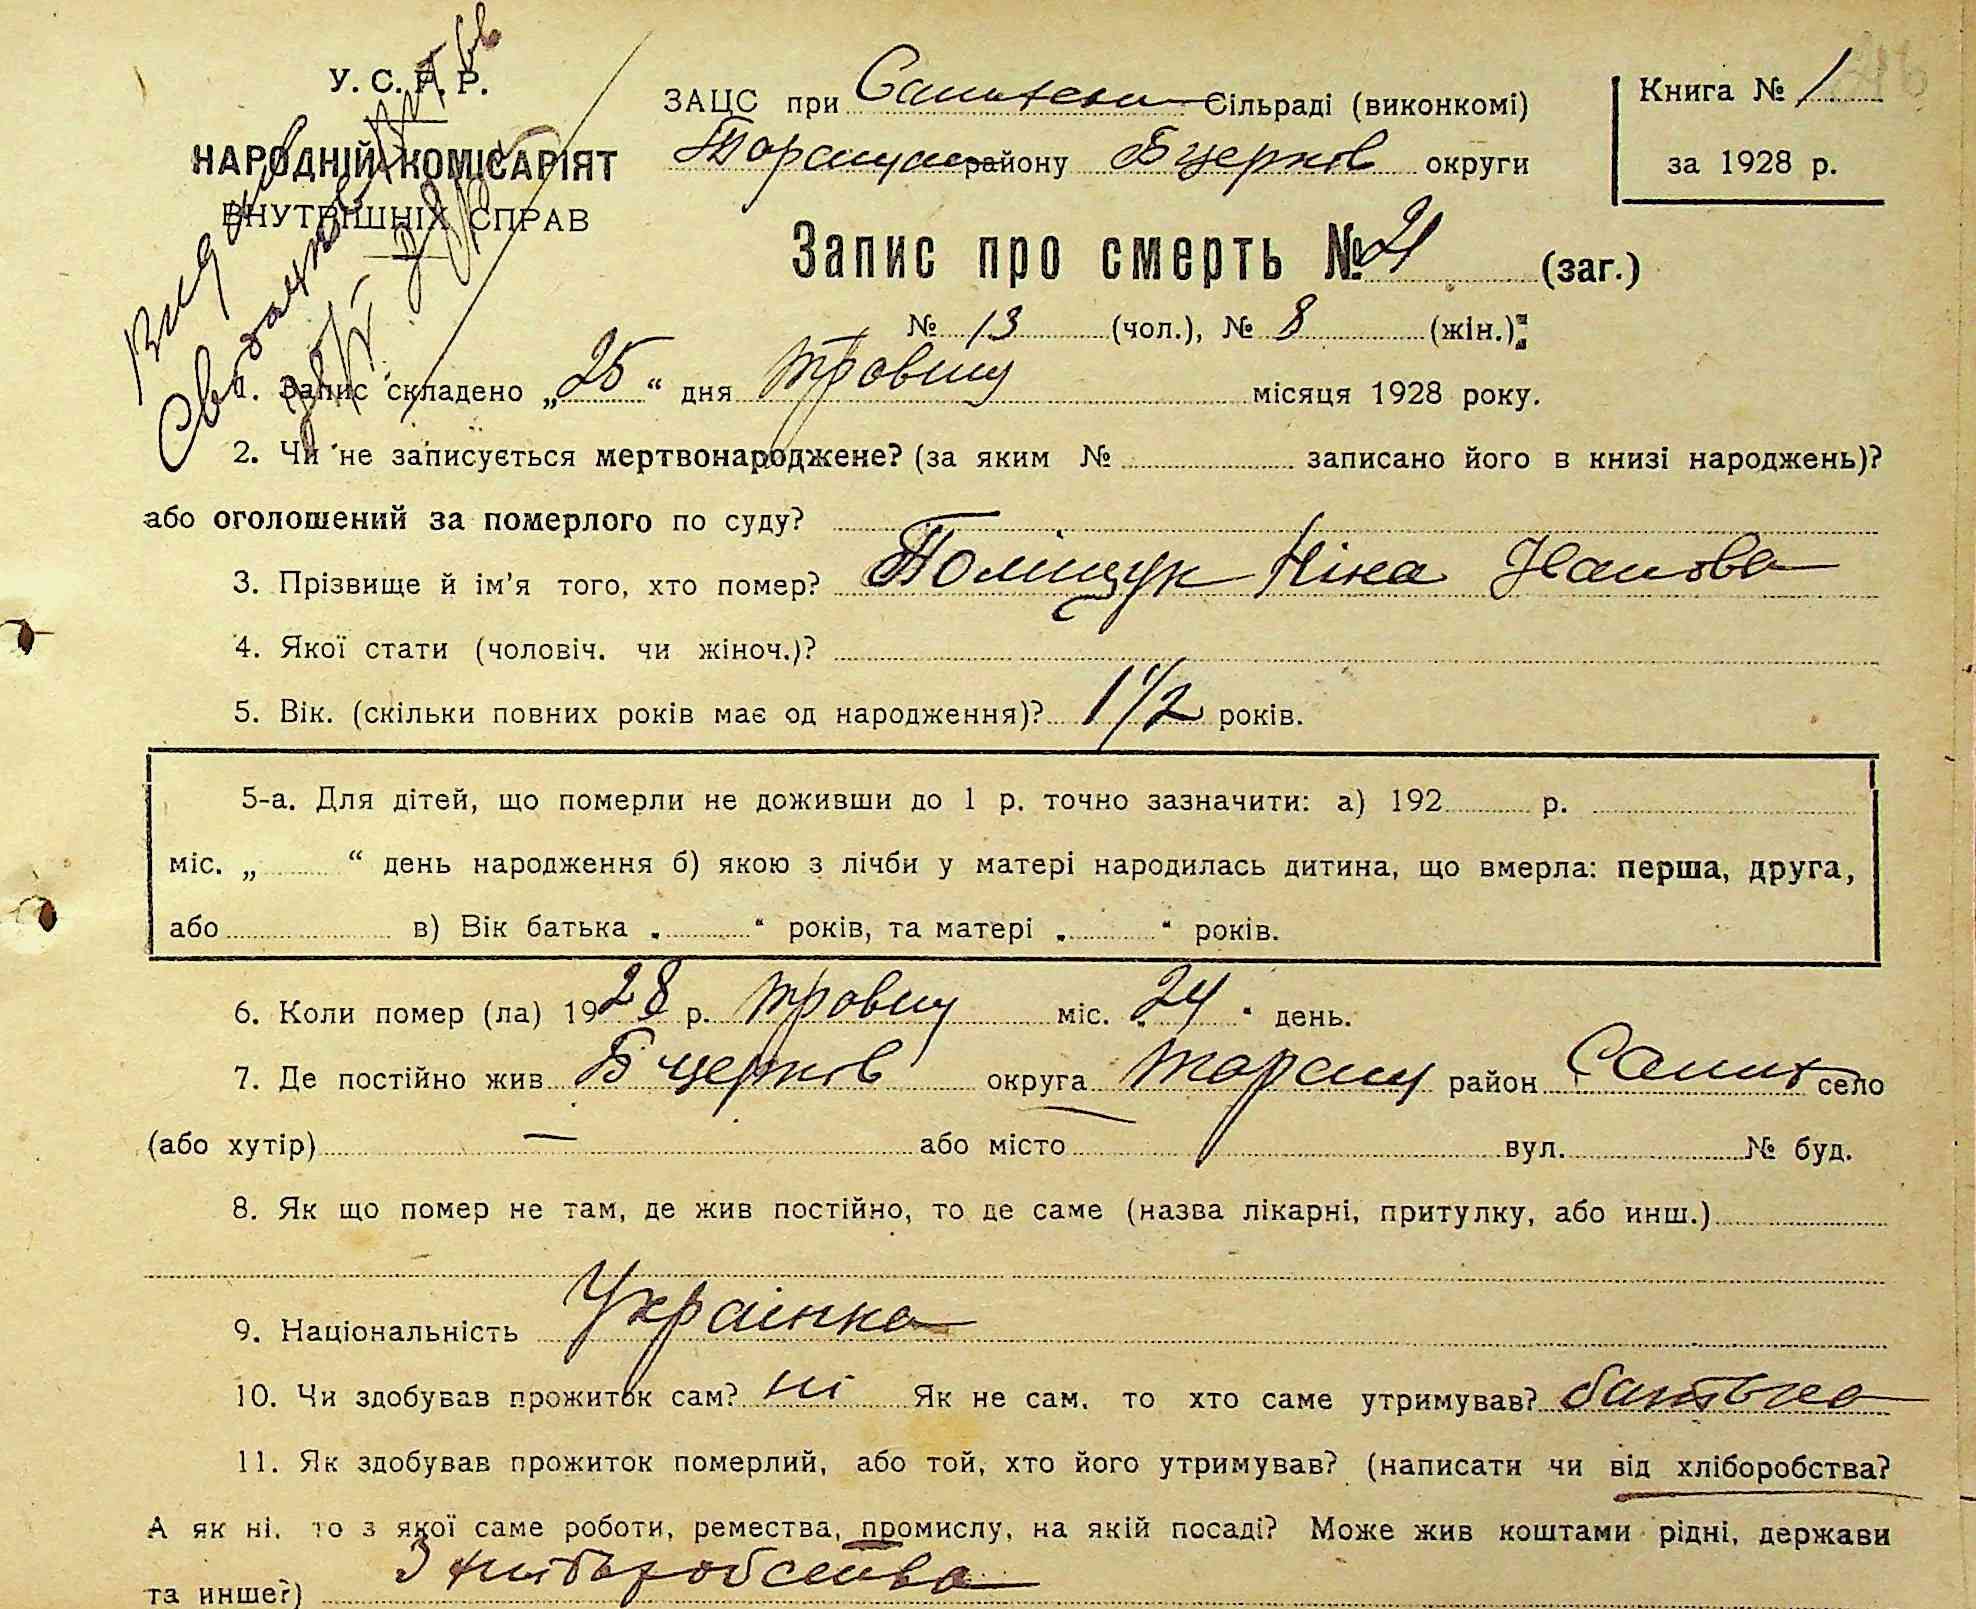 У. С. Р. Р.
НАРОДНІЙ КОМІСАРІЯТ
ВНУТРІШНІХ СПРАВ
ЗАЦС при Сільраді (виконкомі)
району Бцерков округи
Книга № 1
за 1928 р.
Запис про смерть № 21 (заг.)
№ 13 (чол.), № 8 (жін.)
1. Запис складено „25“ дня травня місяця 1928 року.
2. Чи не записується мертвонароджене? (за яким № записано його в книзі народжень)?
або оголошений за померлого по суду?
3. Прізвище й ім’я того, хто помер? Поліщук Ніна
4. Якої стати (чоловіч. чи жіноч.)?
5. Вік. (скільки повних років має од народження)? 1 1/2 років.
5-а. Для дітей, що померли не доживши до 1 р. точно зазначити: а) 192 р.
міс. „ “ день народження б) якою з лічби у матері народилась дитина, що вмерла: перша, друга,
або в) Вік батька „ “ років, та матері „ “ років.
6. Коли помер (ла) 1928 р. травня міс. „24“ день.
7. Де постійно жив Б церков округа Таращ район село
(або хутір) — або місто вул. № буд.
8. Як що помер не там, де жив постійно, то де саме (назва лікарні, притулку, або инш.)
9. Національність Українка
10. Чи здобував прожиток сам? ні Як не сам, то хто саме утримував? батько
11. Як здобував прожиток померлий, або той, хто його утримував? (написати чи від хліборобства?
А як ні, то з якої саме роботи, ремества, промислу, на якій посаді? Може жив коштами рідні, держави
та инше?) З хліборобства